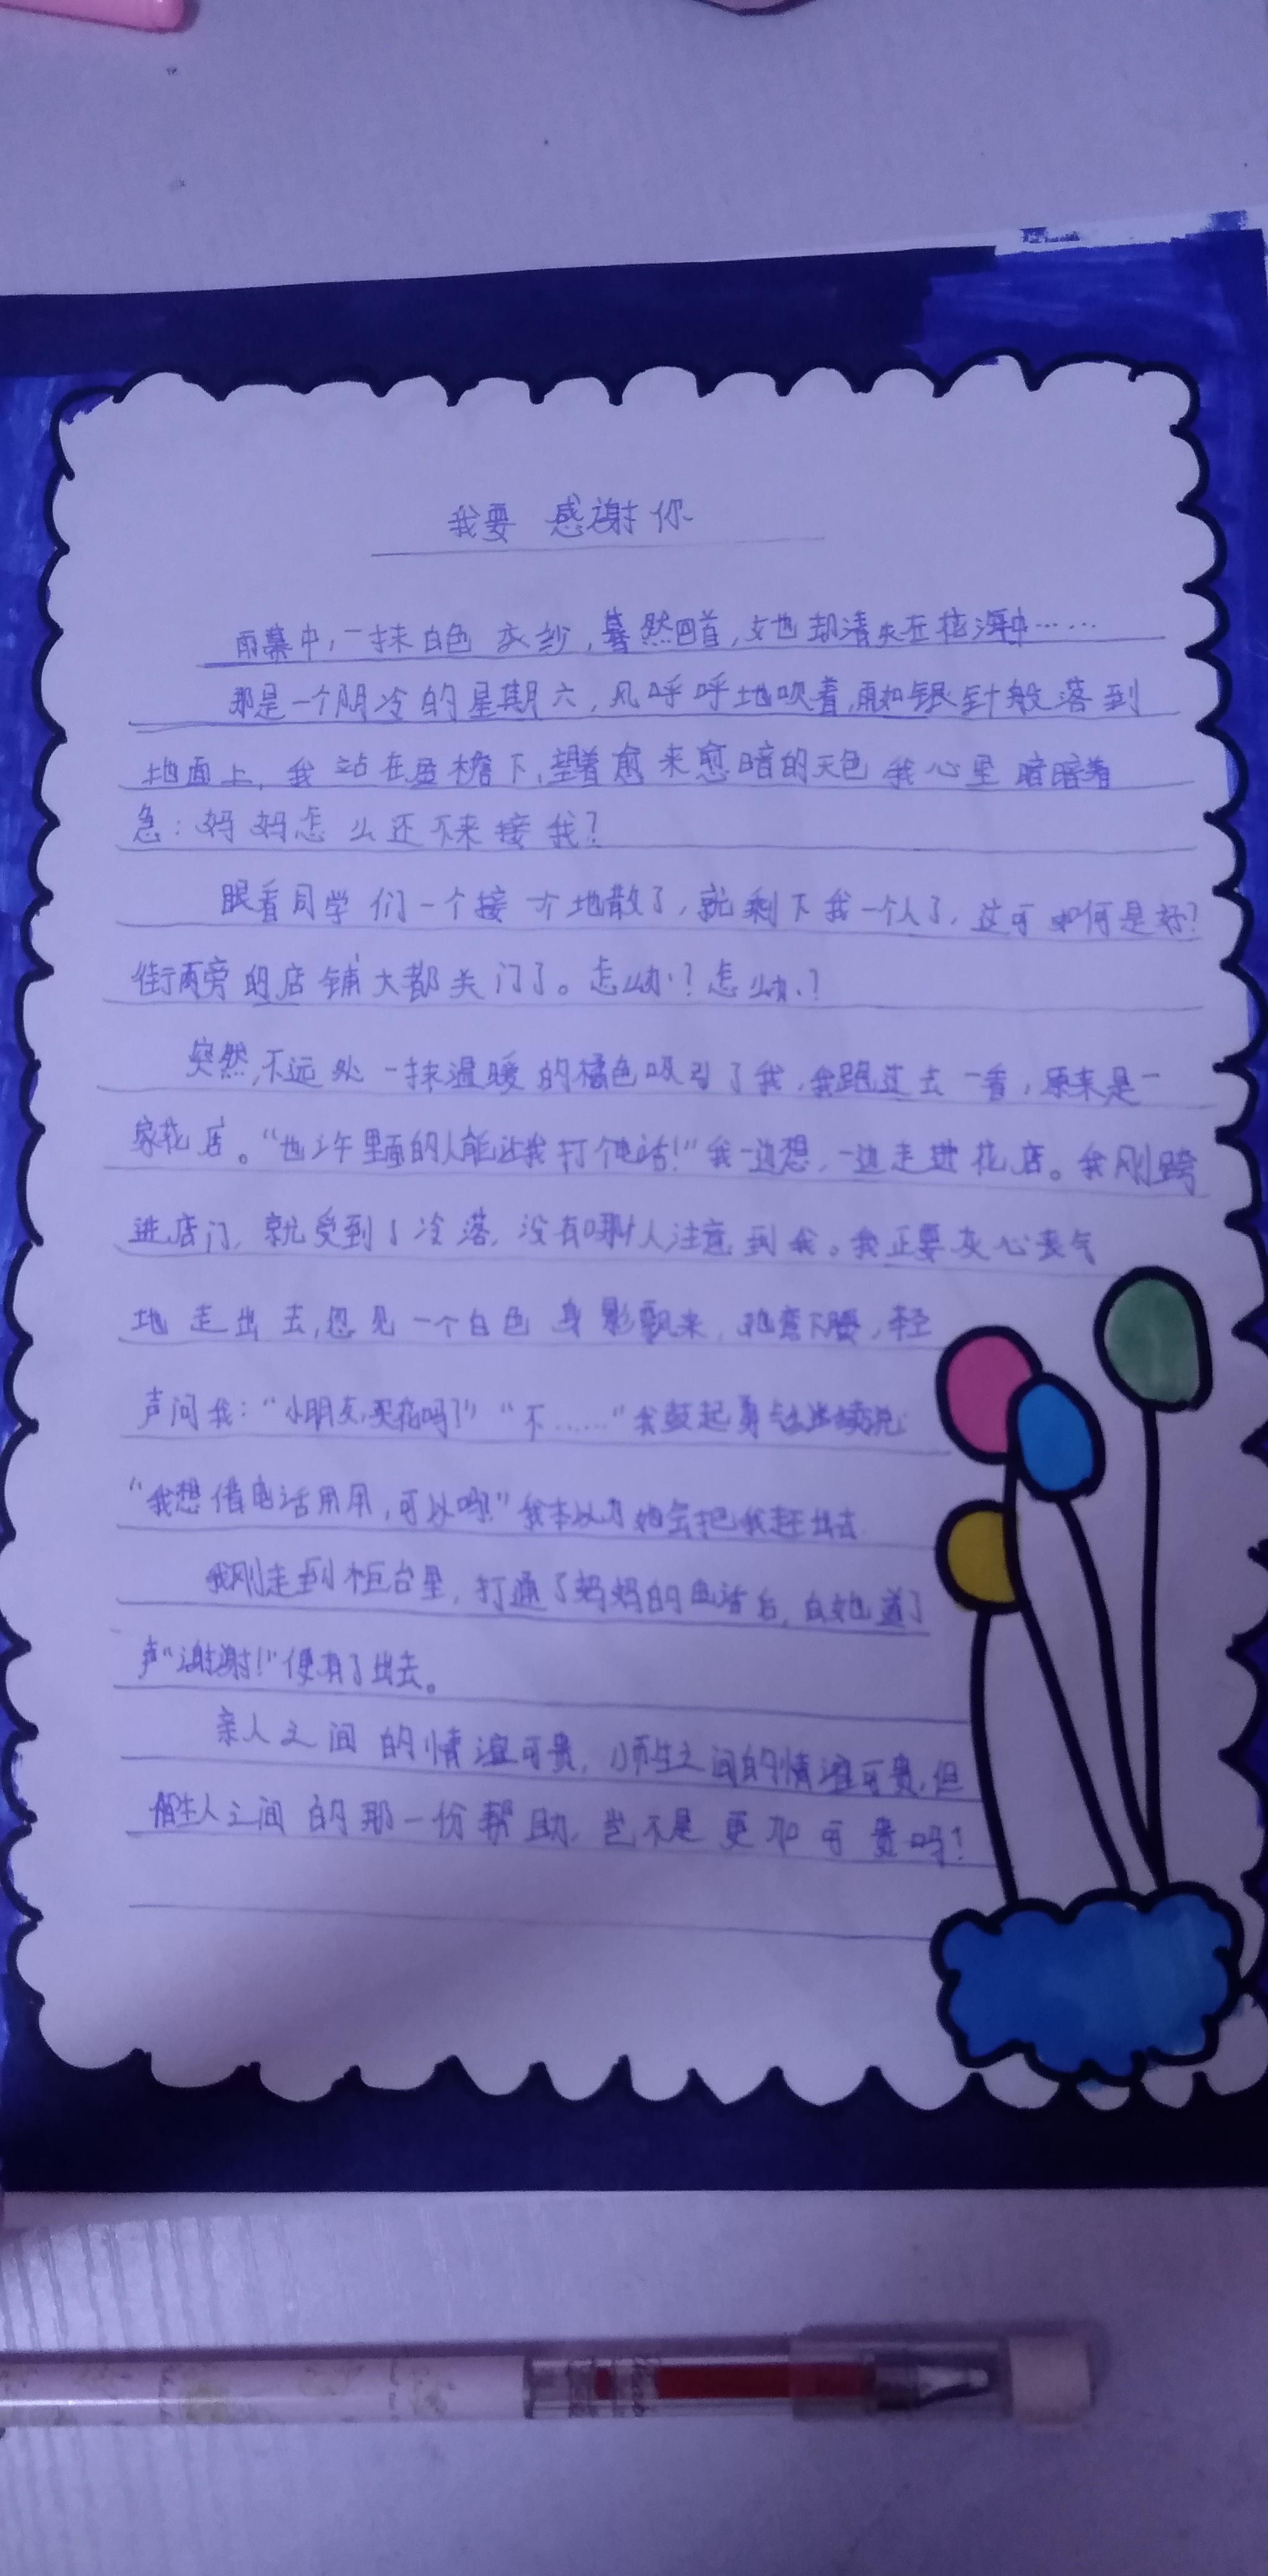 我要感谢你
雨幕中，一抹白色衣纱，蓦然回首，她却消失在花海中……
那是一个阴冷的星期六，风呼呼地吹着，雨如银针般落到
地面上，我站在屋檐下，望着愈来愈暗的天色我心里暗暗着
急：妈妈怎么还不来接我？
眼看同学们一个接一个地散了，就剩下我一个人了，这可如何是好？
街两旁的店铺大都关门了。怎么办？怎么办？
突然，不远处一抹温暖的橘色吸引了我，我跑过去一看，原来是一
家花店。“也许里面的人能让我打个电话！”我一边想，一边走进花店。我刚跨
进店门，就受到了冷落，没有哪个人注意到我。我正要灰心丧气
地走出去，忽见一个白色身影飘来，她弯下腰，轻
声问我：“小朋友，买花吗？”“不……”我鼓起勇气继续说：
“我想借电话用用，可以吗？”我本以为她会把我赶出去
我刚走到柜台里，打通了妈妈的电话后，向她道了
声“谢谢！”便有了出去。
亲人之间的情谊可贵，师生之间的情谊可贵，但
陌生人之间的那一份帮助，岂不是更加可贵吗！